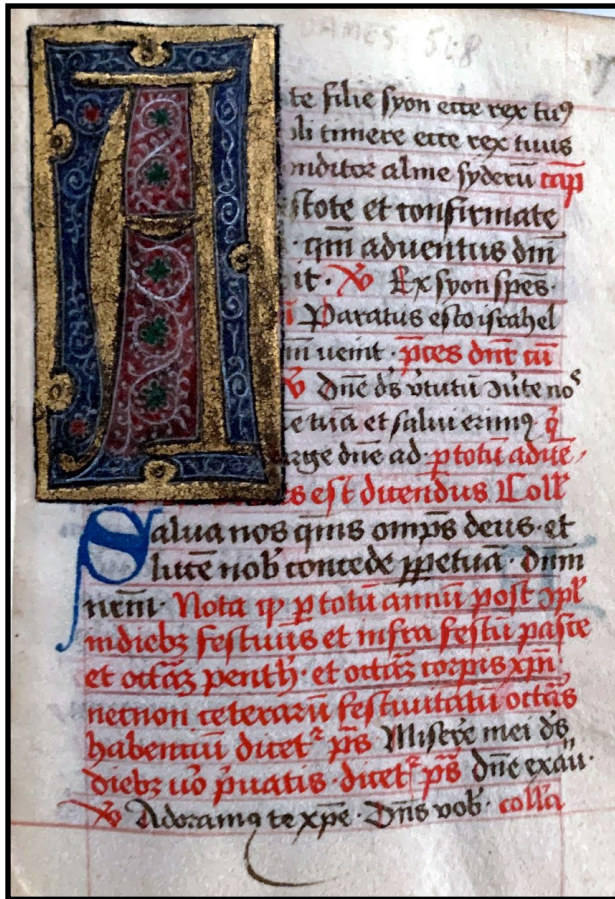 JAMES 548
A
te filie syon ecce rex tuꝰ
li timere ecce rex tuus
onditor alme syderū cap̄
stote et confirmate
· qm̄ aduentus dm̄
it · v̄ Ex syon spēs ·
Paratus esto israhel
m̄ ueint · p̄ces dn̄r cū
v̄ Dn̄e ds̄ v̓tutū ɔu̓te noˢ
ē tuā et salui erimꝰ
urge dn̄e ad · p totū aduē
es est dicendus Coll̄
Salua nos q̄ms omp̄s deus · et
lucē nob̓ concede ꝑpetuā · Dnm̄
nr̄m · Nota ꝙ p totū annū post
in diebꝫ festiuis et infra festū pasce
et octāꝫ penth̓ · et octāꝫ corpis xp̄ı
necnon ceterarū festiuitatū octās
habentiū dicetᷣ ps̄ Misere̓ mei ds̄
diebꝫ uo̓ p̓uatis · dicetᷣ ps̄ Dn̄e exau̓ ·
v̄ Adoramꝰ te xp̄e · Dn̄s vob̓ · coll̄a